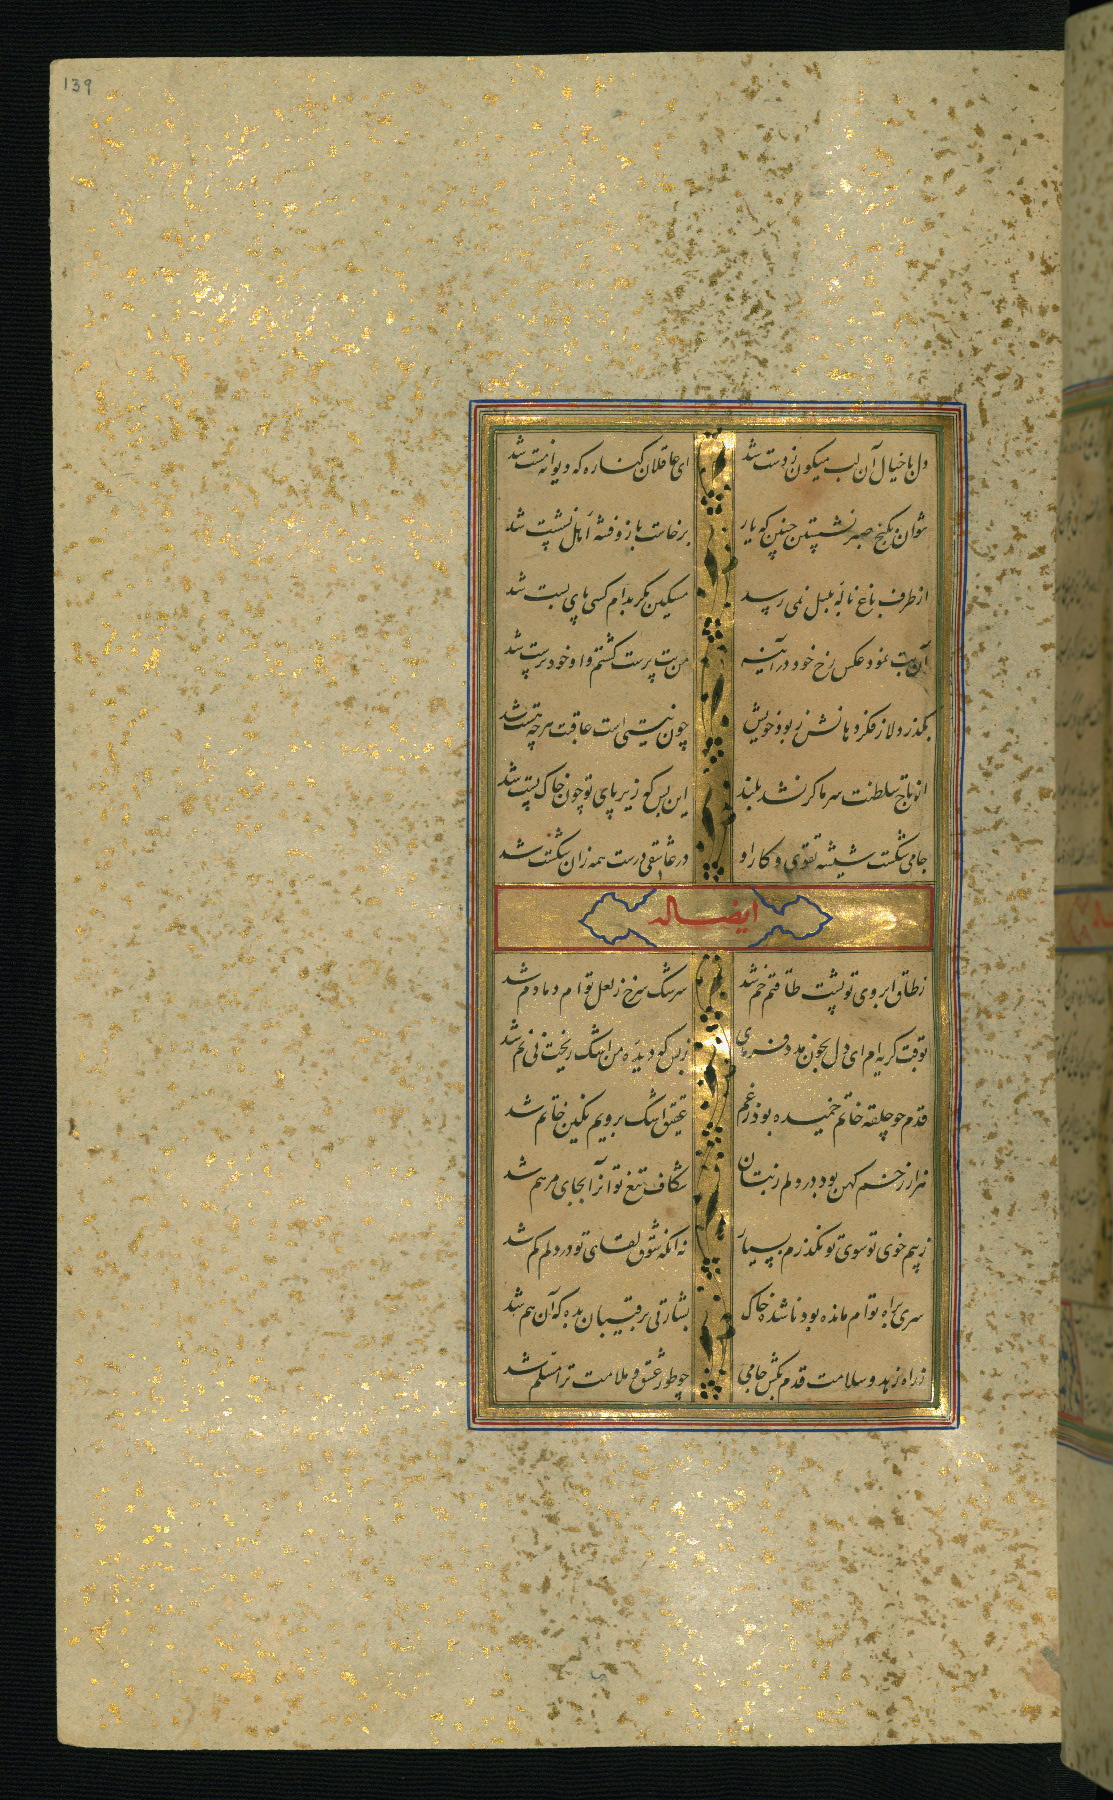 139
دل با خیال آن لب میگون ز دست شد ای عاقلان کناره که دیوانه مست شد
نتوان بکنج صبر نشستن چنین که یار برخاست باز و فتنه اهل نشست شد
از طرف باغ ناله بلبل نمی رسد مسکین مگر بدام کسی پای بست شد
آن بت نمود عکس رخ خود در آینه من بت پرست گشتم و او خود پرست شد
بگذر دلا ز فکر دهانش ز بود خویش چون نیستی است عاقبت هر چه هست شد
از تاج سلطنت سر ما گر نشد بلند این بس که زیر پای تو چون خاک پست شد
جامی شکست شیشه تقوی و کار او در عاشقی درست همه زان شکست شد
ایضا له
ز طاق ابروی تو پشت طاقتم خم شد سرشک سرخ ز لعل توام دمادم شد
بوقت گریه ام ای دل بخون مدد فرمای ز بس که دیده من اشک ریخت بی نم شد
قدم چو حلقه خاتم خمیده بود ز غم عقیق اشک برویم نگین خاتم شد
هزار زخم کهن بود بر دلم ز بتان شکاف تیغ تو آنرا بجای مرهم شد
ز بیم خوی تو سوی تو نگذرم بسیار نه آنکه شوق لقای تو در دلم کم شد
سری براه توام مانده بود ناشده خاک بشارتی برقیبان بده که آن هم شد
ز راه زهد و سلامت قدم بکش جامی چو طور عشق و ملامت ترا مسلم شد